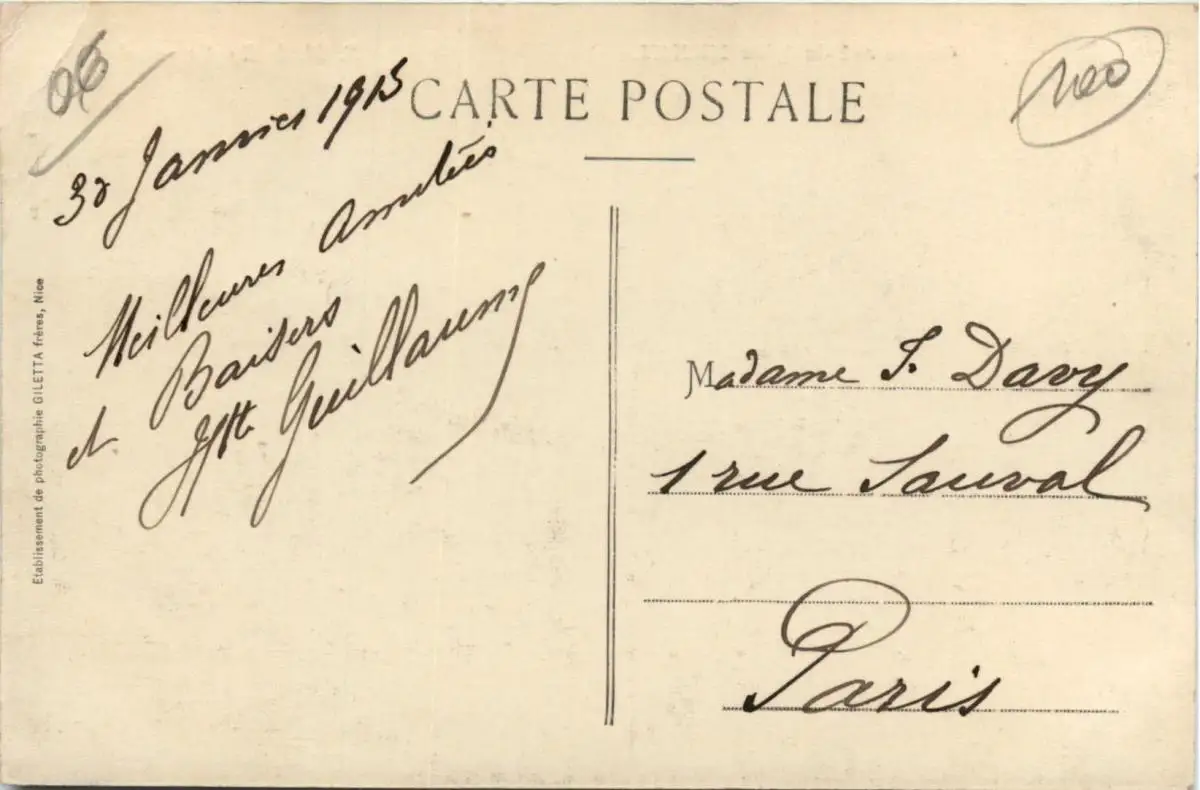 CARTE POSTALE
30 Janvier 1915
Meilleures Amitiés
et Baisers
Guillaume
Madame F. Davy
1 rue Sauval
Paris
Etablissement de photographie GILETTA frères, Nice